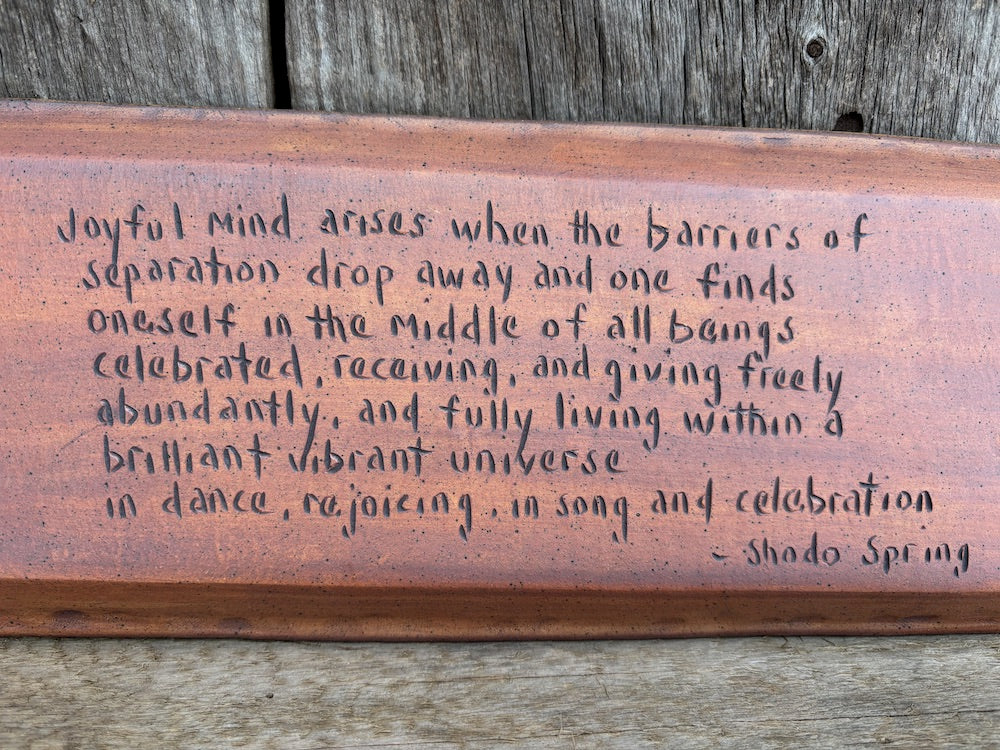 Joyful Mind arises when the barriers of
separation drop away and one finds
oneself in the Middle of all beings
celebrated, receiving, and giving freely
abundantly, and fully living within a
brilliant vibrant universe
in dance, rejoicing, in song and celebration
- Shodo Spring